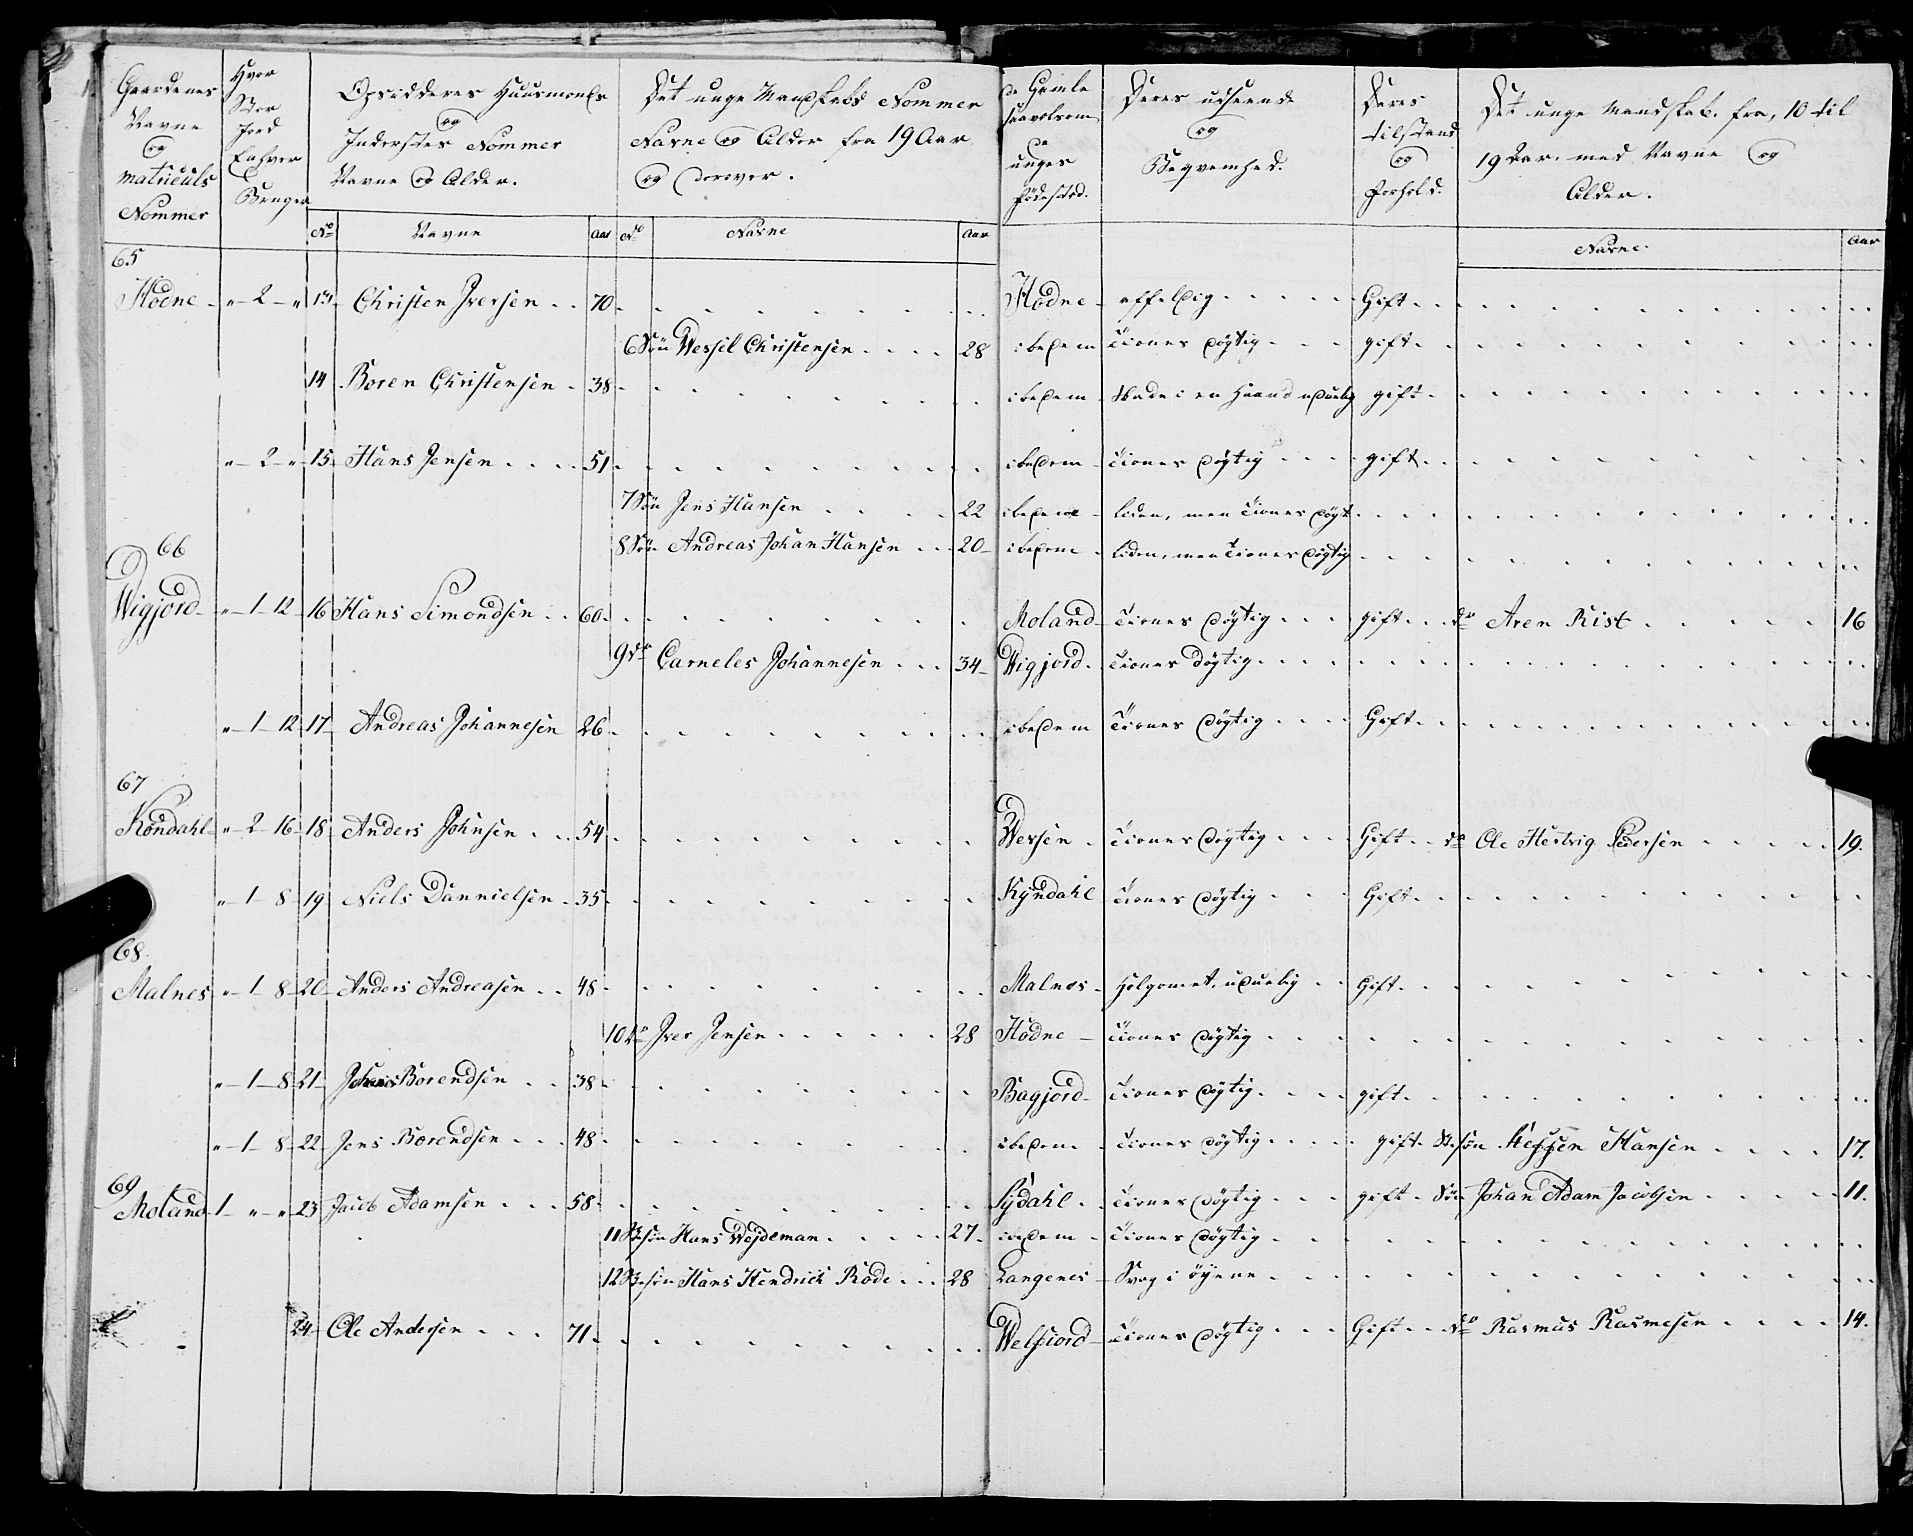 Gaardenes
Navne
og
matriculs
Nommer
Hvor
Stor
Jord
Enhver
Bruger
Opsidderes Huusmænds
og
Inderstes Nommer
Navne og Alder.
Det unge Mandskabs Nommer
Navne og Alder fra 19 Aar
og derover.
De Gamle
saavelsom
de
unges
fødested.
Deres udseende
og
Beqvemhed.
Deres
tilstand
og
forhold.
Det unge Mandskab, fra, 10 til
19 Aar. med Navne og
Alder.
No Navne Aar No Navne Aar Navne. Aar
65
Hodne „ 2 „ 13 Christen Iversen 70 Hodne affeldig Gift
6 Søn Wessel Christensen 28 ibedem Tienes døgtig gift
14 Boren Christensen 38 ibedem Skade i en Haand uduelig gift
„ 2 „ 15 Hans Jensen 51 ibedem Tienes døgtig gift
7 Søn Jens Hansen 22 ibedem liden, men Tienes døgt
8 Søn Andreas Johan Hansen 20 ibedem liden, men Tienes døgtig
66
Wigjord „ 1 12 16 Hans Simondsen 60 Moland Tienes døgtig gift do Aren Rist 16
9 do Carneles Johannesen 34 Wigjord Tienes døgtig
„ 1 12 17 Andreas Johannesen 26 ibedem Tienes døgtig Gift
67
Køndahl „ 2 16 18 Anders Johnsen 54 Wersen Tienes døgtig Gift do Ole Hertvig Pedersen 19.
„ 1 8 19 Niels Dannielsen 35 Kyndahl Tienes døgtig Gift
68.
Malnes „ 1 8 20 Anders Andreasen 48 Malnes uduelig Gift
10 do Iver Jensen 28 Hodne Tienes døgtig
„ 1 8 21 Borendsen 38 Bagjord Tienes døgtig gift
„ 1 8 22 Jens Borendsen 48 ibedem Tienes døgtig gift St: søn Hansen 17.
69
Moland 1 „ „ 23 Jacob Adamsen 58 Sydahl Tienes døgtig gift Søn Johan Adam Jacobsen 11.
11 St: søn Hans Wejdeman 27 ibedem Tienes døgtig
12 St: søn Hans Hendrick Rode 28 Langenes Svag i øynene
24 Ole Andersen 71 Welfiord Tienes døgtig Gift do Rasmus Rasmesen 14.